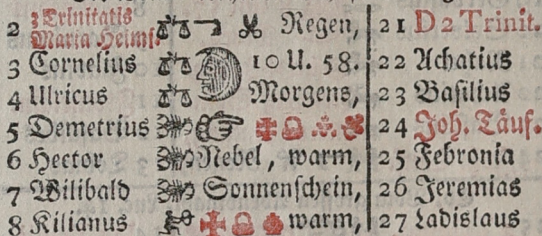 3 Trinitatis
2 Maria Heims. Regen, 21 D 2 Trinit.
3 Cornelius 10 U. 58. 22 Achatius
4 Ulricus Morgens, 23 Basilius
5 Demetrius 24 Joh. Täuf.
6 Hector Nebel, warm, 25 Febronia
7 Wilibald Sonnenschein, 26 Jeremias
8 Kilianus warm, 27 Ladislaus